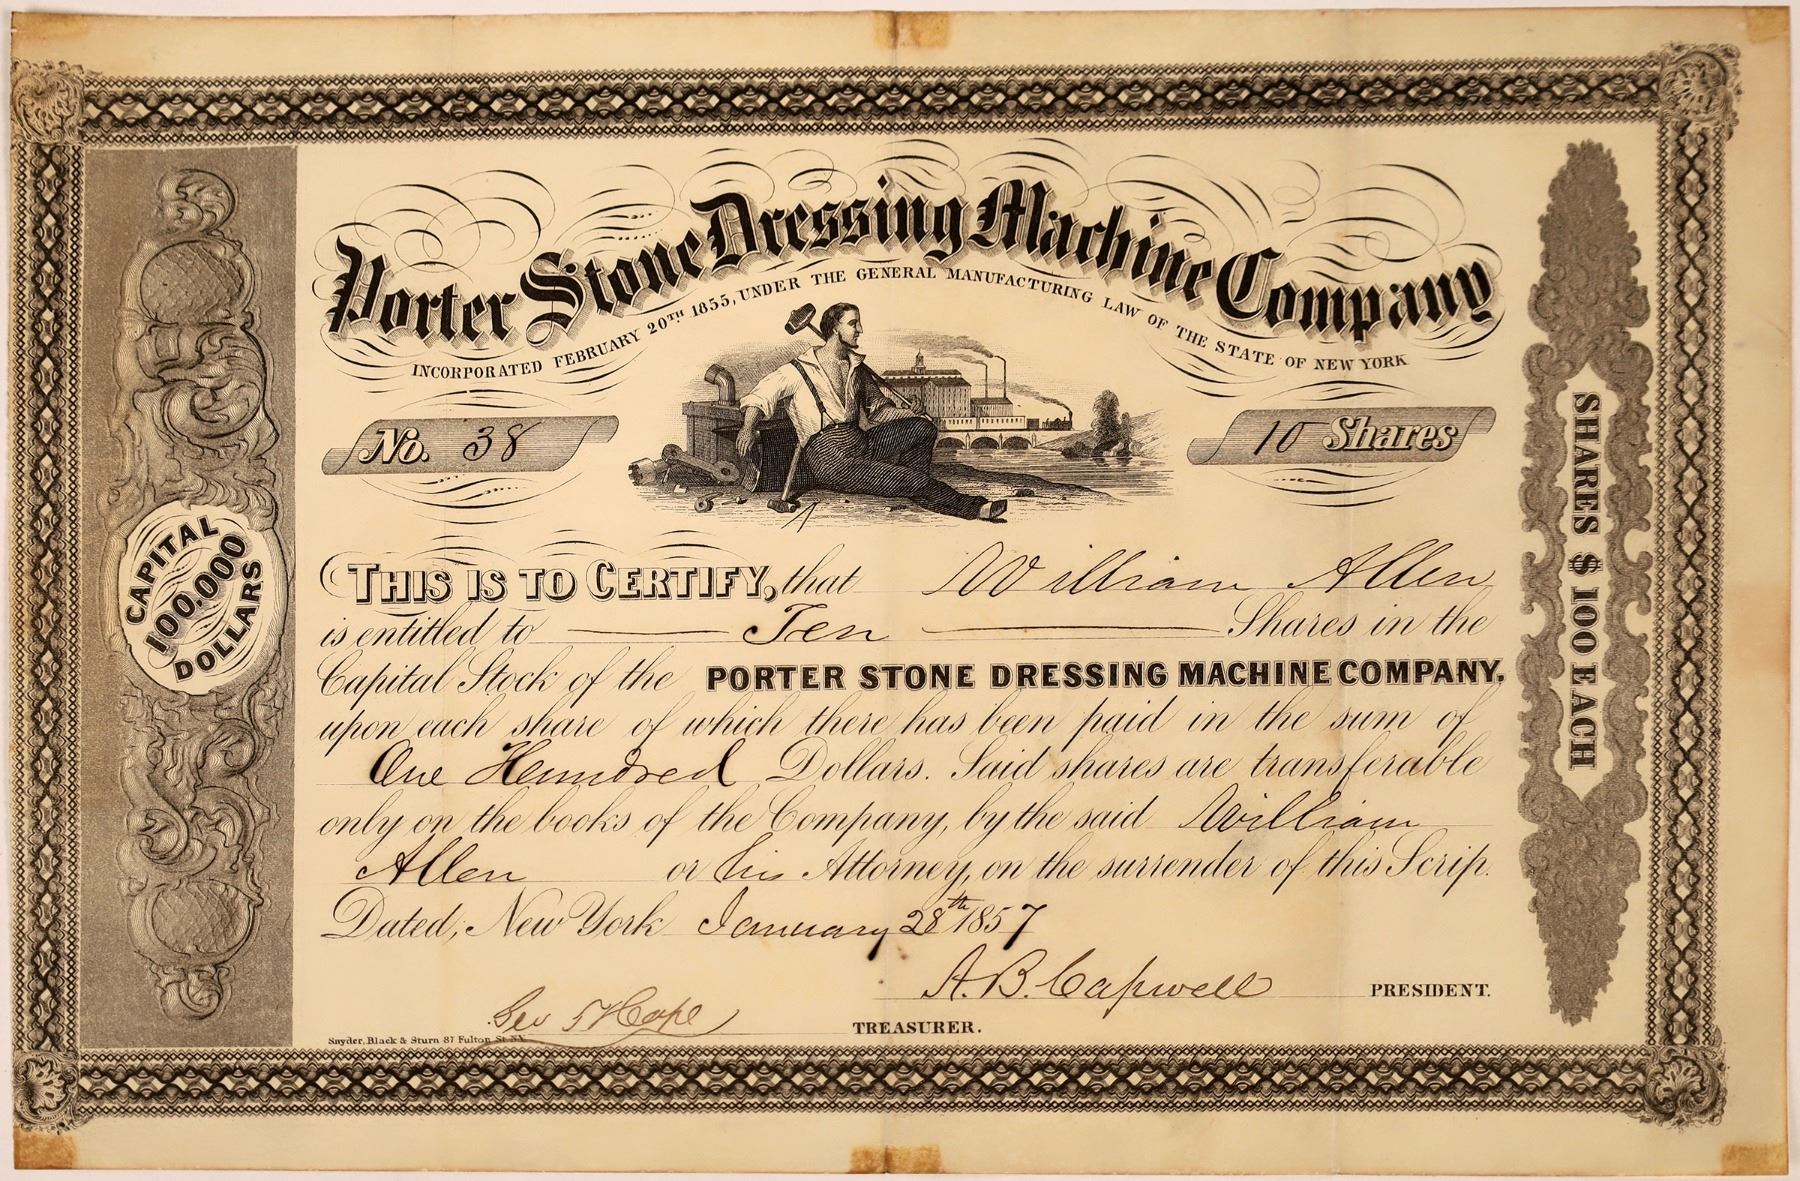 Porter Stone Dressing Machine Company
INCORPORATED FEBRUARY 20TH 1855, UNDER THE GENERAL MANUFACTURING LAW OF THE STATE OF NEW YORK
No. 38
10 Shares
CAPITAL
100,000
DOLLARS
SHARES $100 EACH
THIS IS TO CERTIFY, that William Allen
is entitled to Ten Shares in the
Capital Stock of the PORTER STONE DRESSING MACHINE COMPANY,
upon each share of which there has been paid in the sum of
One Hundred Dollars. Said shares are transferable
only on the books of the Company, by the said William
Allen or his Attorney, on the surrender of this Scrip.
Dated, New York January 28th 1857
A. B. Capwell PRESIDENT.
Geo Hope TREASURER.
Snyder, Black & Sturn 87 Fulton St. N.Y.